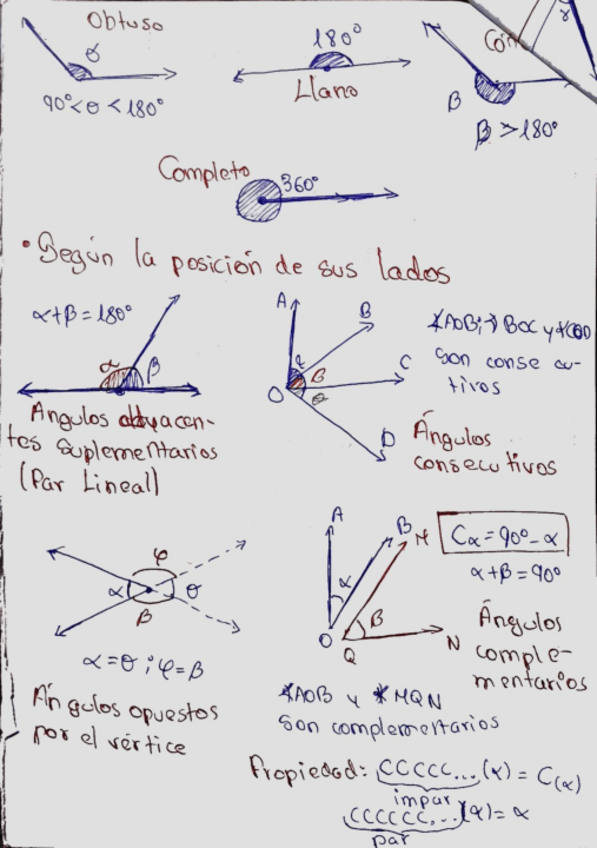 Obtuso
θ
90°<θ<180°
180°
Llano
γ
Cón
β
β >180°
Completo
360°
• Según la posición de sus lados
α+β=180°
α β
Angulos adyacen-
tes Suplementarios
(Par Lineal)
A
B
C
O
β
θ
D
∡AOB; ∡BOC y ∡COD
son consecu-
tivos
Ángulos
consecutivos
φ
α θ
β
α=θ ; φ=β
Ángulos opuestos
por el vértice
A
B M
α
β
O
Q
N
Cα=90°-α
α+β=90°
Ángulos
comple-
mentarios
∡AOB y ∡MQN
son complementarios
Propiedad: CCCCC...(α) = C(α)
impar
CCCCCC...(α)=α
par